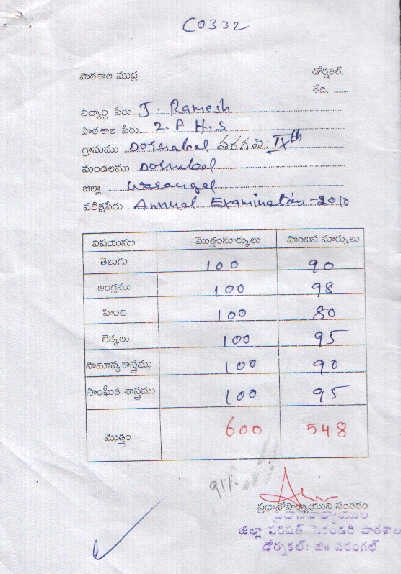 C0332
పాఠశాల ముద్ర డోర్నకల్.
తేది.
విద్యార్థి పేరు J. Ramesh
పాఠశాల పేరు Z. P H. S
గ్రామము Dornakal తరగతి IXth
మండలము Dornakal
జిల్లా Warangal
పరీక్షపేరు Annual Examination-2010
విషయము మొత్తంమార్కులు పొందిన మార్కులు
తెలుగు 100 90
ఆంగ్లము 100 98
హింది 100 80
లెక్కలు 100 95
సామాన్యశాస్త్రము 100 90
సాంఘీక శాస్త్రము 100 95
మొత్తం 600 548
91%
ప్రధానోపాధ్యాయుని సంతకం
జిల్లా పరిషత్ సెకండరి పాఠశాల
డోర్నకల్: జిః వరంగల్